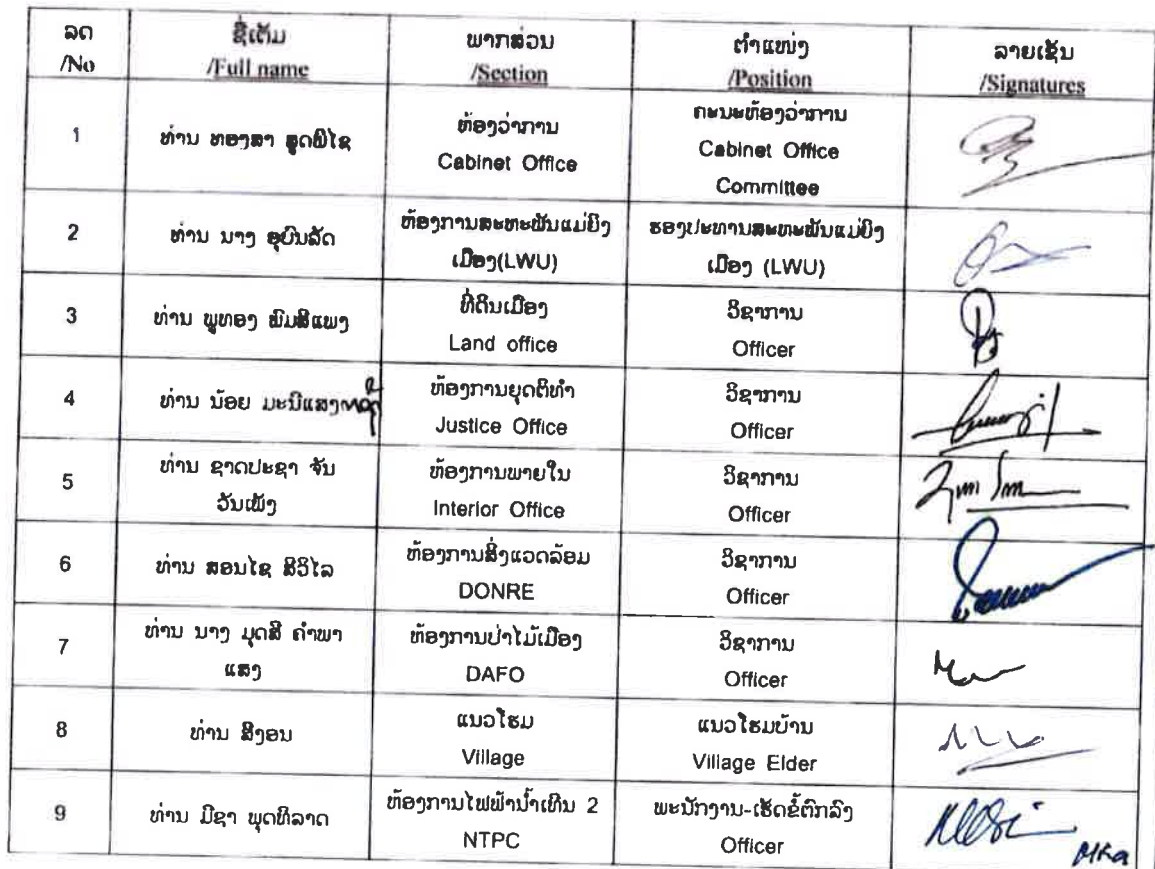 ລດ
/No
ຊື່ເຕັມ
/Full name
ພາກສ່ວນ
/Section
ຕຳແໜ່ງ
/Position
ລາຍເຊັນ
/Signatures
1
ທ່ານ ທອງສາ ສຸດພິໄຊ
ຫ້ອງວ່າການ
Cabinet Office
ຄະນະຫ້ອງວ່າການ
Cabinet Office
Committee
2
ທ່ານ ນາງ ອຸບົນລັດ
ຫ້ອງການສະຫະພັນແມ່ຍິງ
ເມືອງ(LWU)
ຮອງປະທານສະຫະພັນແມ່ຍິງ
ເມືອງ (LWU)
3
ທ່ານ ພູທອງ ພົມສີແພງ
ທີ່ດິນເມືອງ
Land office
ວິຊາການ
Officer
4
ທ່ານ ນ້ອຍ ມະນີແສງ
ຫ້ອງການຍຸຕິທຳ
Justice Office
ວິຊາການ
Officer
5
ທ່ານ ຊາດປະຊາ ຈັນ
ວັນເພັງ
ຫ້ອງການພາຍໃນ
Interior Office
ວິຊາການ
Officer
6
ທ່ານ ສອນໄຊ ສີວິໄລ
ຫ້ອງການສິ່ງແວດລ້ອມ
DONRE
ວິຊາການ
Officer
7
ທ່ານ ນາງ ມຸດສີ ຄຳພາ
ແສງ
ຫ້ອງການປ່າໄມ້ເມືອງ
DAFO
ວິຊາການ
Officer
8
ທ່ານ ສີງອນ
ແນວໂຮມ
Village
ແນວໂຮມບ້ານ
Village Elder
9
ທ່ານ ມີຊາ ພຸດທິລາດ
ຫ້ອງການໄຟຟ້ານ້ຳເທີນ 2
NTPC
ພະນັກງານ-ເຮັດຂໍ້ຕົກລົງ
Officer